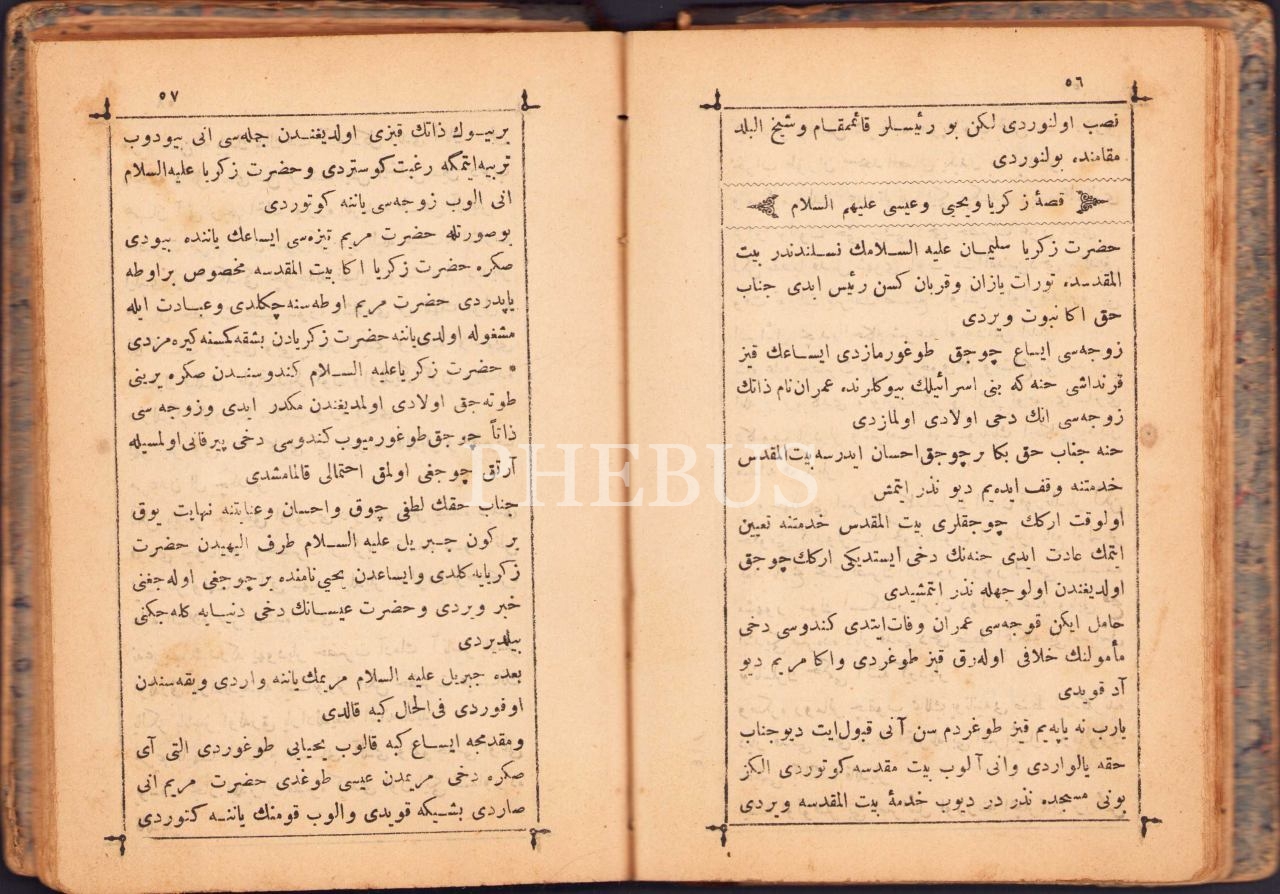 ٥٦
نصب اولنوردی لکن بو رئیسلر قائممقام و شیخ البلد
مقامنده بولنوردی
قصۀ زکریا و یحیی و عیسی علیهم السلام
حضرت زکریا سلیمان علیه السلامك نسلندندر بیت
المقدسده تورات یازان و قربان کسن رئیس ایدی جناب
حق اکا نبوت ویردی
زوجه‌سی ایساع چوجق طوغورمازدی ایساعك قیز
قرنداشی حنه که بنی اسرائیلك بیوکلرنده عمران نام ذاتك
زوجه‌سی انك دخی اولادی اولمازدی
حنه جناب حق بکا برچوجق احسان ایدرسه بیت‌المقدس
خدمتنه وقف ایده‌یم دیو نذر ایتمش
اولوقت ارکك چوجقلری بیت المقدس خدمتنه تعیین
ایتمك عادت ایدی حنه‌نك دخی ایستدیکی ارکك چوجق
اولدیغندن اولوجهله نذر اتمشیدی
حامل ایکن قوجه‌سی عمران وفات ایتدی کندوسی دخی
مأمولنك خلافی اوله‌رق قیز طوغردی واکا مریم دیو
آد قویدی
یارب نه یاپه‌یم قیز طوغردم سن آنی قبول‌ایت دیو جناب
حقه یالواردی وانی آلوب بیت مقدسه کوتوردی الکز
بونی مسجده نذر در دیوب خدمۀ بیت المقدسه ویردی
٥٧
بربیوك ذاتك قیزی اولدیغندن جمله‌سی انی بیودوب
تربیه ایتمکه رغبت کوستردی وحضرت زکریا علیه السلام
انی الوب زوجه‌سی یاننه کوتوردی
بوصورتله حضرت مریم تیزه‌سی ایساعك یاننده بیودی
صکره حضرت زکریا اکا بیت المقدسه مخصوص براوطه
یاپدردی حضرت مریم اوطه‌سنه چکلدی وعبادت ایله
مشغوله اولدی یاننه حضرت زکریادن بشقه کمسنه کیره‌مزدی
• حضرت زکریا علیه السلام کندوسندن صکره یرینی
طوته‌جق اولادی اولمدیغندن مکدر ایدی وزوجه سی
ذاتاً چوجق طوغورمیوب کندوسی دخی پیرفانی اولمسیله
آرتق چوجغی اولمق احتمالی قالمامشدی
جناب حقك لطفی چوق واحسان وعنایتنه نهایت یوق
بر کون جبریل علیه السلام طرف الهیدن حضرت
زکریایه کلدی وایساعدن یحیی نامنده برچوجغی اوله‌جغنی
خبر ویردی وحضرت عیسانك دخی دنیایه کله‌جکنی
بیلدیردی
بعده جبریل علیه السلام مریمك یاننه واردی ویقه‌سندن
اوفوردی فی‌الحال کبه قالدی
ومقدمجه ایساع کبه قالوب یحیایی طوغوردی التی آی
صکره دخی مریمدن عیسی طوغدی حضرت مریم انی
صاردی بشیکه قویدی والوب قومنك یاننه کتوردی
PHEBUS